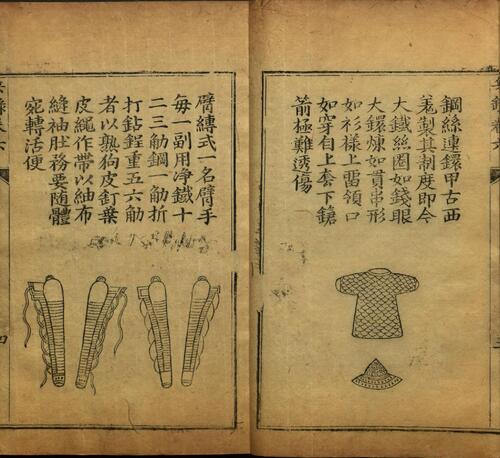 鋼絲連鐶甲古西
羗製其制度即今
大鐵絲圈如錢眼
大鐶煉如貫串形
如衫樣上畱領口
如穿自上套下鎗
箭極難透傷
臂縛式一名臂手
每一副用净鐵十
二三觔鋼一觔折
打鉆鋥重五六觔
者以熟狗皮釘葉
皮繩作帶以紬布
縫袖肚務要随體
宛轉活便
四